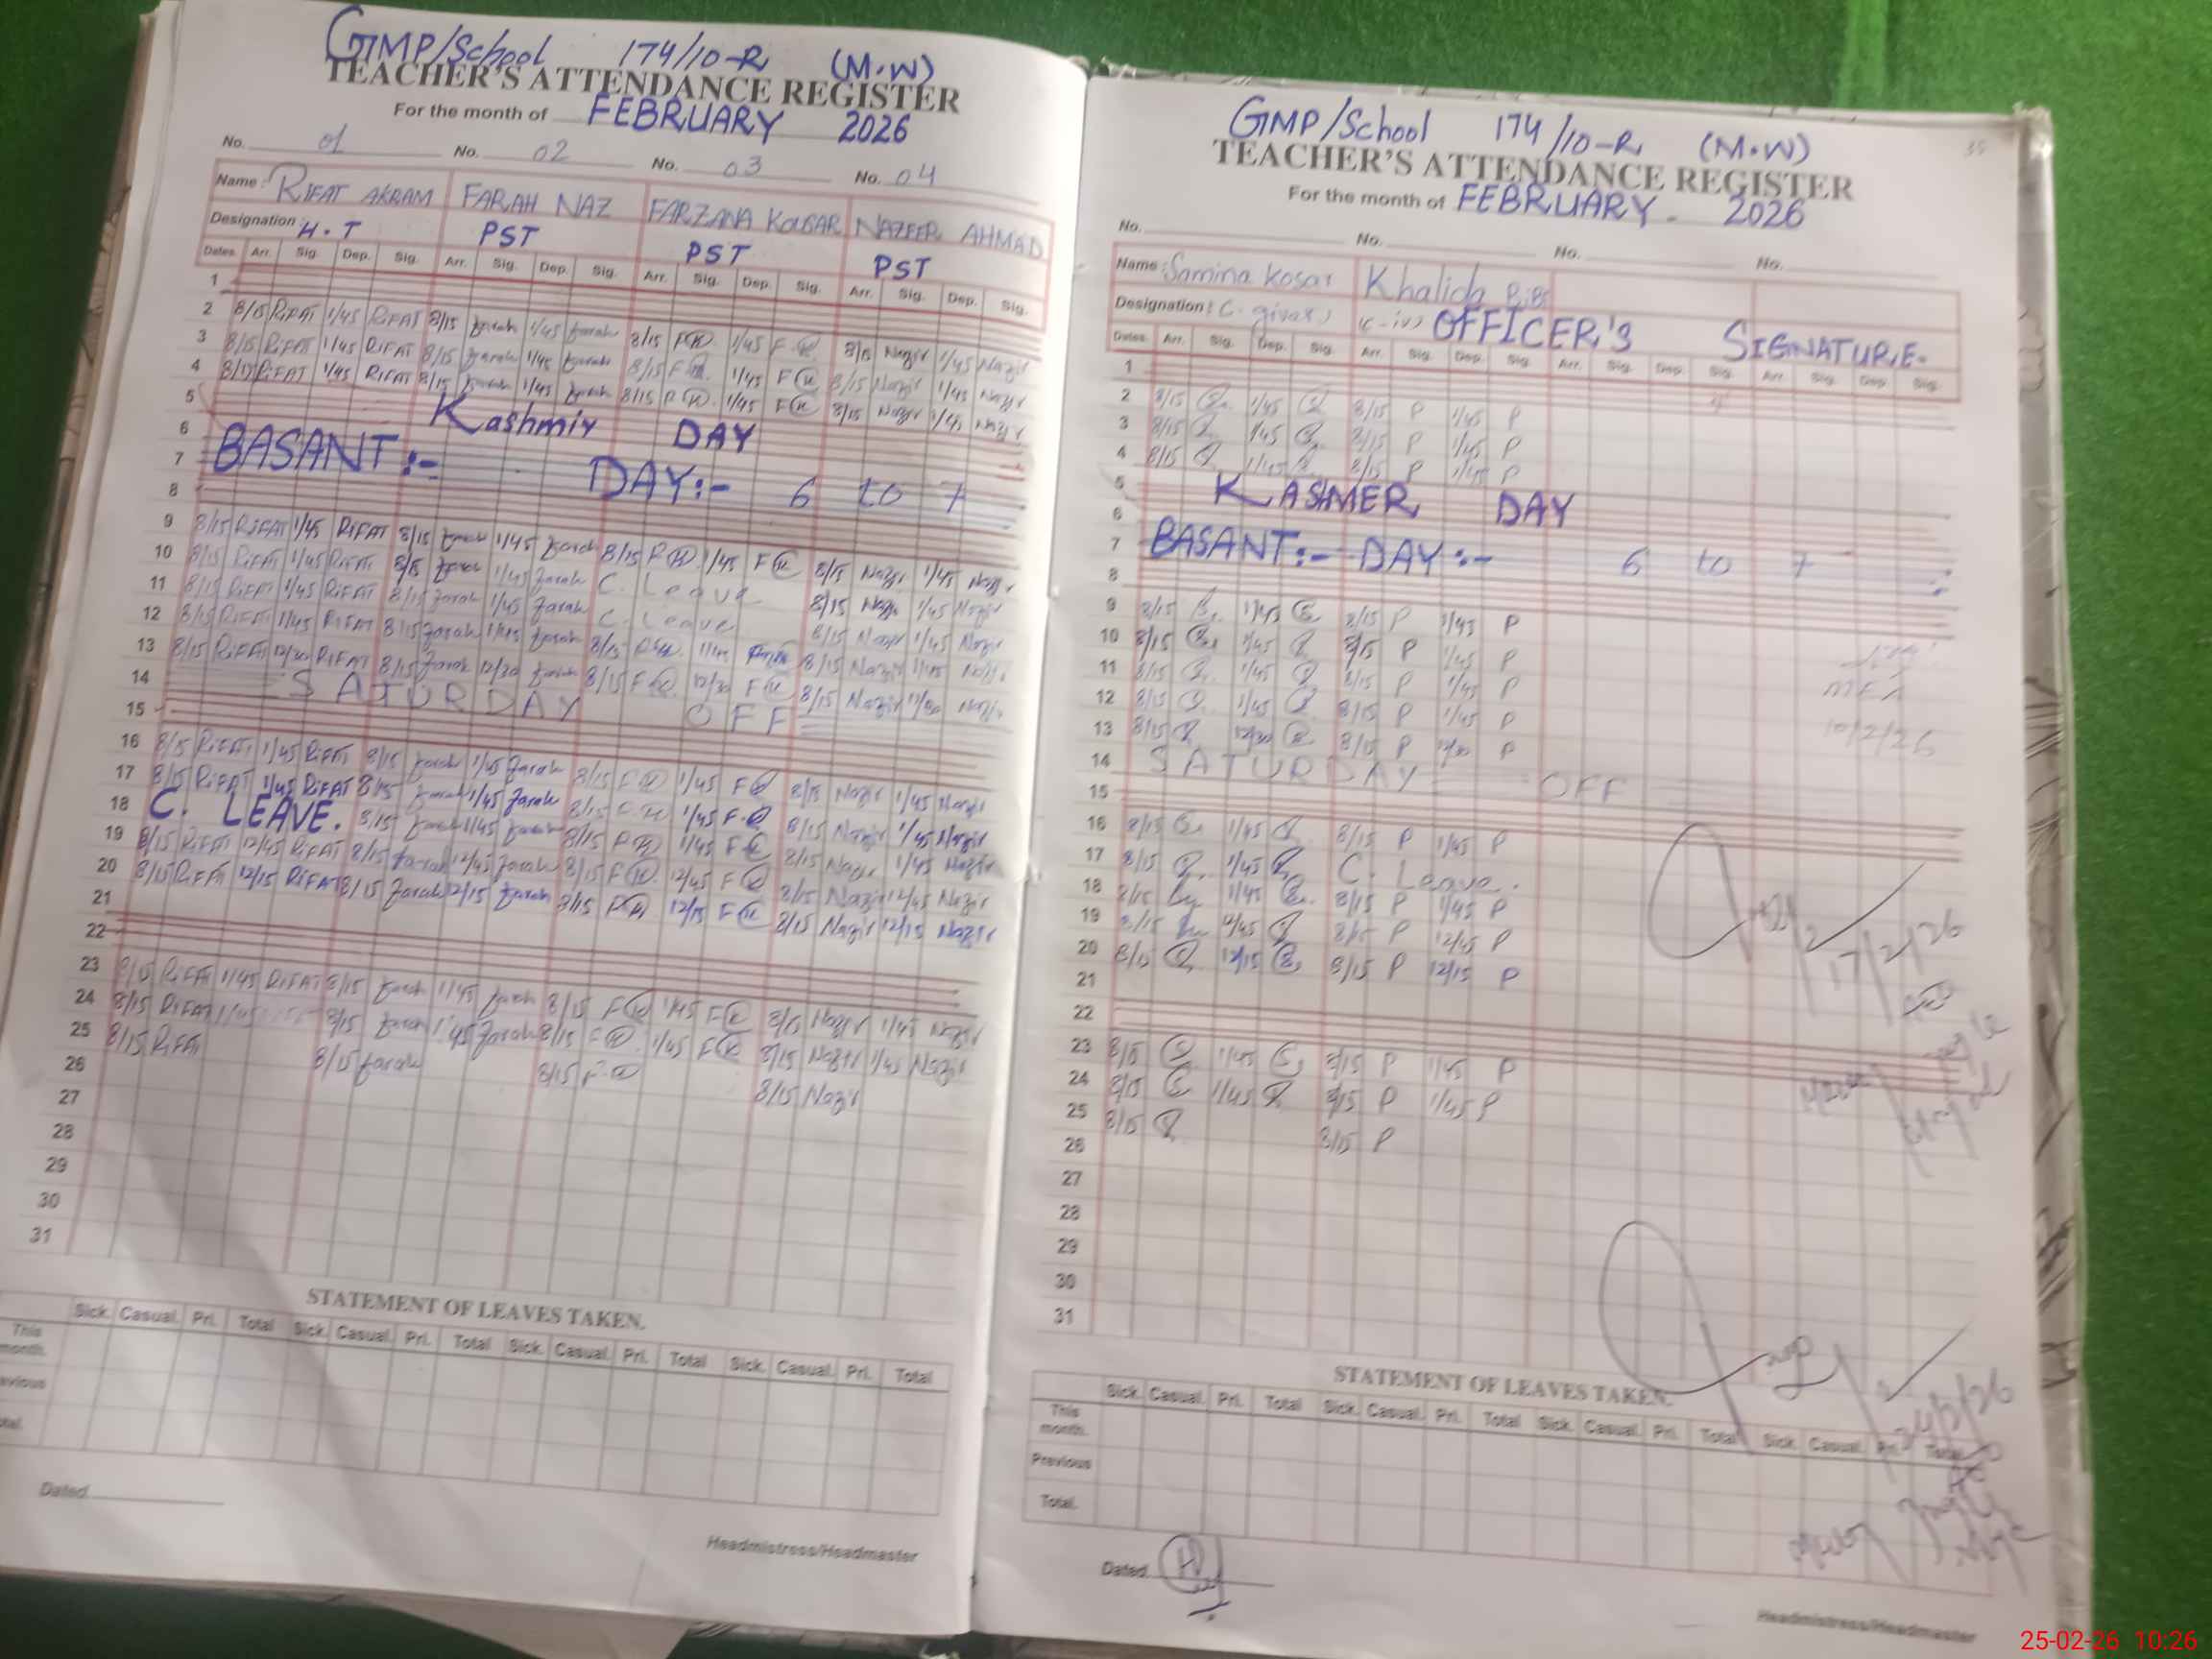 GMP/School 174/10-R (M.W)
TEACHER'S ATTENDANCE REGISTER
For the month of FEBRUARY 2026
No. 01 No. 02 No. 03 No. 04
Name: RIFAT AKRAM FARAH NAZ FARZANA KOUSAR NAZEER AHMAD
Designation: H.T PST PST PST
Dates Arr. Sig. Dep. Sig. Arr. Sig. Dep. Sig. Arr. Sig. Dep. Sig. Arr. Sig. Dep. Sig.
1
2 8/15 RIFAT 1/45 RIFAT 8/15 Farah 1/45 Farah 8/15 1/45 8/15 Nazir 1/45 Nazir
3 8/15 RIFAT 1/45 RIFAT 8/15 Farah 1/45 Farah 8/15 1/45 8/15 Nazir 1/45 Nazir
4 8/15 RIFAT 1/45 RIFAT 8/15 Farah 1/45 Farah 8/15 1/45 8/15 Nazir 1/45 Nazir
5 Kashmir DAY
6
7 BASANT:- DAY:- 6 to 7
8
9 8/15 RIFAT 1/45 RIFAT 8/15 Farah 1/45 Farah 8/15 1/45 8/15 Nazir 1/45 Nazir
10 8/15 RIFAT 1/45 RIFAT 8/15 Farah 1/45 Farah C. Leave 8/15 Nazir 1/45 Nazir
11 8/15 RIFAT 1/45 RIFAT 8/15 Farah 1/45 Farah C. Leave 8/15 Nazir 1/45 Nazir
12 8/15 RIFAT 1/45 RIFAT 8/15 Farah 1/45 Farah 8/15 1/45 8/15 Nazir 1/45 Nazir
13 8/15 RIFAT 12/30 RIFAT 8/15 Farah 12/30 Farah 8/15 12/30 8/15 Nazir Nazir
14 SATURDAY OFF
15
16 8/15 RIFAT 1/45 RIFAT 8/15 Farah 1/45 Farah 8/15 1/45 8/15 Nazir 1/45 Nazir
17 8/15 RIFAT 1/45 RIFAT 8/15 Farah 1/45 Farah 8/15 1/45 8/15 Nazir 1/45 Nazir
18 C. LEAVE. 8/15 Farah 1/45 Farah 8/15 1/45 8/15 Nazir 1/45 Nazir
19 8/15 RIFAT 12/45 RIFAT 8/15 Farah 12/45 Farah 8/15 12/45 8/15 Nazir 12/45 Nazir
20 8/15 RIFAT 12/15 RIFAT 8/15 Farah 12/15 Farah 8/15 12/15 8/15 Nazir 12/15 Nazir
21
22
23 8/15 RIFAT 1/45 RIFAT 8/15 Farah 1/45 Farah 8/15 1/45 8/15 Nazir 1/45 Nazir
24 8/15 RIFAT 1/45 8/15 Farah 1/45 Farah 8/15 1/45 8/15 Nazir 1/45 Nazir
25 8/15 RIFAT 8/15 Farah 8/15 8/15 Nazir
26
27
28
29
30
31
STATEMENT OF LEAVES TAKEN.
Sick. Casual. Pri. Total Sick. Casual. Pri. Total Sick. Casual. Pri. Total Sick. Casual. Pri. Total
This month.
Dated
Headmistress/Headmaster
GMP/School 174/10-R (M.W)
TEACHER'S ATTENDANCE REGISTER
For the month of FEBRUARY 2026
No. No. No. No.
Name: Samina Kosar Khalida BiBi
Designation: (C-iv) OFFICER'S SIGNATURE.
Dates Arr. Sig. Dep. Sig. Arr. Sig. Dep. Sig. Arr. Sig. Dep. Sig. Arr. Sig. Dep. Sig.
1
2 8/15 1/45 8/15 P 1/45 P
3 8/15 1/45 8/15 P 1/45 P
4 8/15 1/45 8/15 P 1/45 P
5 KASHMER DAY
6
7 BASANT:- DAY:- 6 to 7
8
9 8/15 1/45 8/15 P 1/45 P
10 8/15 1/45 8/15 P 1/45 P
11 8/15 1/45 8/15 P 1/45 P
12 8/15 1/45 8/15 P 1/45 P 10/2/26
13 8/15 12/30 8/15 P 12/30 P
14 SATURDAY OFF
15
16 8/15 1/45 8/15 P 1/45 P
17 8/15 1/45 C. Leave.
18 8/15 1/45 8/15 P 1/45 P
19 8/15 12/45 8/15 P 12/45 P 17/2/26
20 8/15 12/15 8/15 P 12/15 P
21
22
23 8/15 1/45 8/15 P 1/45 P
24 8/15 1/45 8/15 P 1/45 P
25 8/15 8/15 P
26
27
28
29
30
31
STATEMENT OF LEAVES TAKEN.
24/2/26
Sick. Casual. Pri. Total Sick. Casual. Pri. Total Sick. Casual. Pri. Total Sick. Casual. Pri. Total
This month.
Previous
Total.
Dated
Headmistress/Headmaster
25-02-26 10:26